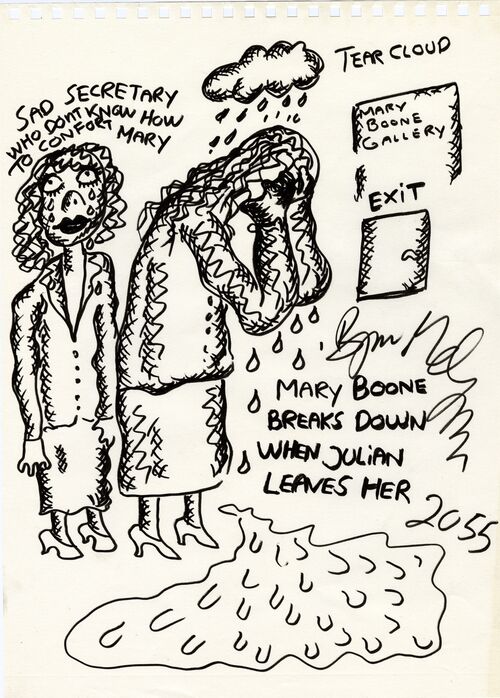 TEAR CLOUD
SAD SECRETARY
WHO DON'T KNOW HOW
TO CONFORT MARY
MARY
BOONE
GALLERY
EXIT
MARY BOONE
BREAKS DOWN
WHEN JULIAN
LEAVES HER
2055